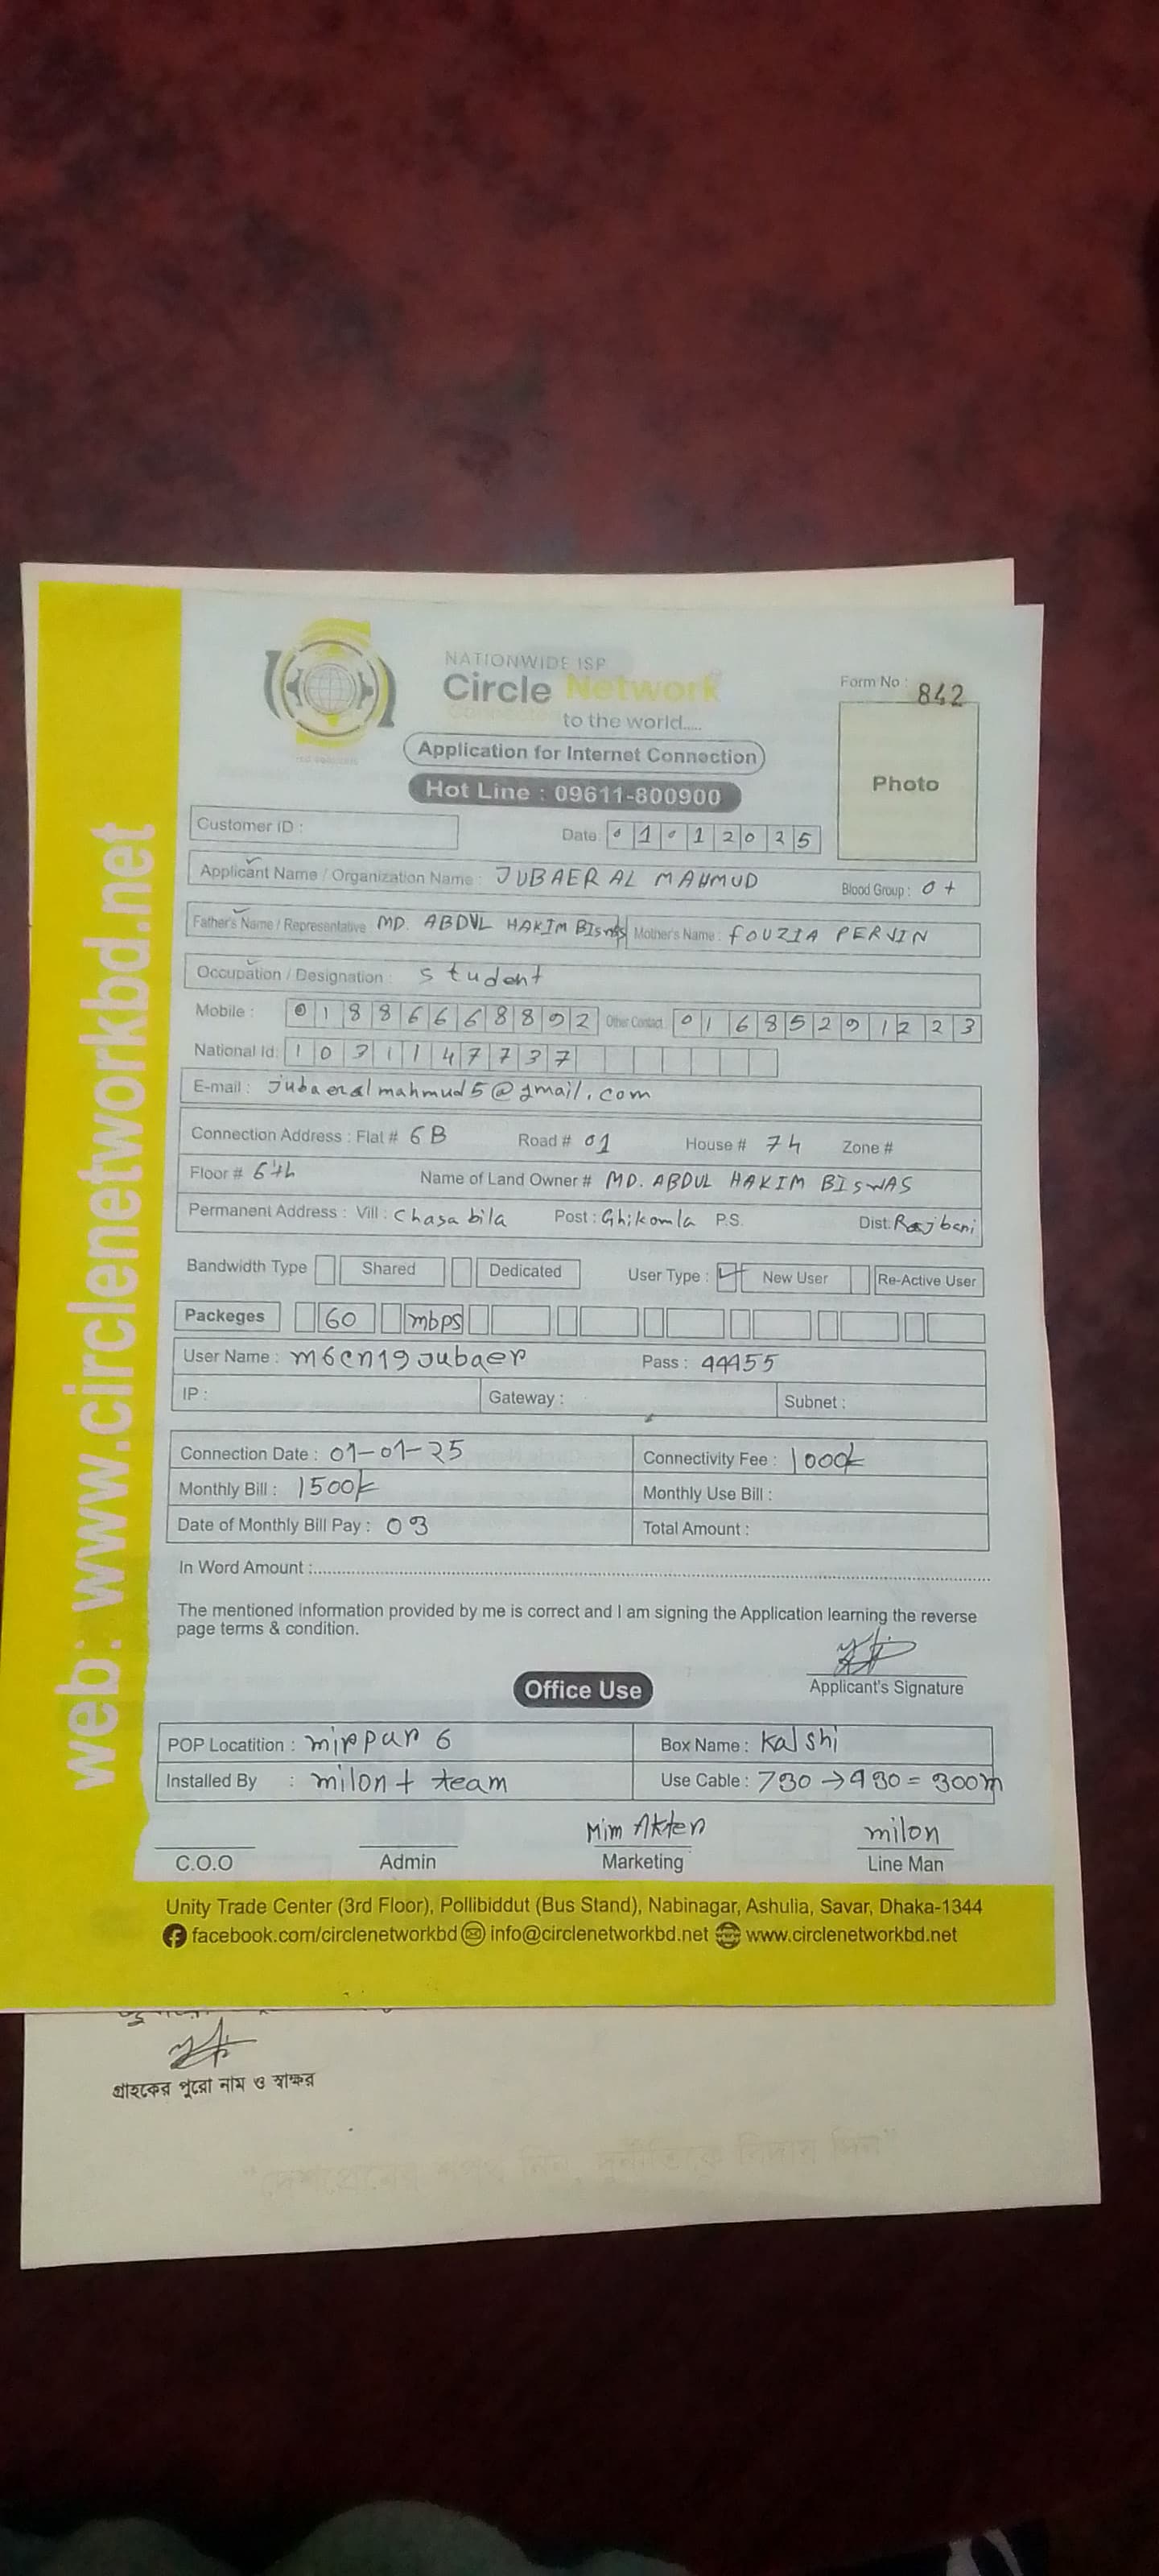 web: www.circlenetworkbd.net
NATIONWIDE ISP
Circle Network
to the world.....
Application for Internet Connection
Hot Line : 09611-800900
Form No : 842
Photo
Customer ID :
Date 01012025
Applicant Name / Organization Name : JUBAER AL MAHMUD Blood Group : O+
Father's Name / Representative MD. ABDUL HAKIM BISWAS Mother's Name : FOUZIA PERVIN
Occupation / Designation : Student
Mobile : 01886668892 Other Contact 01685291223
National Id: 1031147737
E-mail : jubaeralmahmud5@gmail.com
Connection Address : Flat # 6B Road # 01 House # 74 Zone #
Floor # 6th Name of Land Owner # MD. ABDUL HAKIM BISWAS
Permanent Address : Vill : Chasabila Post : Ghikomla P.S. Dist. Rajbari
Bandwidth Type Shared Dedicated User Type : New User Re-Active User
Packeges 60 mbps
User Name : m6cn19Jubaer Pass : 44455
IP : Gateway : Subnet :
Connection Date : 01-01-25 Connectivity Fee : 1000
Monthly Bill : 1500 Monthly Use Bill :
Date of Monthly Bill Pay : 03 Total Amount :
In Word Amount :
The mentioned information provided by me is correct and I am signing the Application learning the reverse
page terms & condition.
Applicant's Signature
Office Use
POP Locatition : mirpur 6 Box Name : Kalshi
Installed By : milon + team Use Cable : 730 → 430 = 300m
Mim Akter milon
C.O.O Admin Marketing Line Man
Unity Trade Center (3rd Floor), Pollibiddut (Bus Stand), Nabinagar, Ashulia, Savar, Dhaka-1344
facebook.com/circlenetworkbd info@circlenetworkbd.net www.circlenetworkbd.net
গ্রাহকের পুরো নাম ও স্বাক্ষর